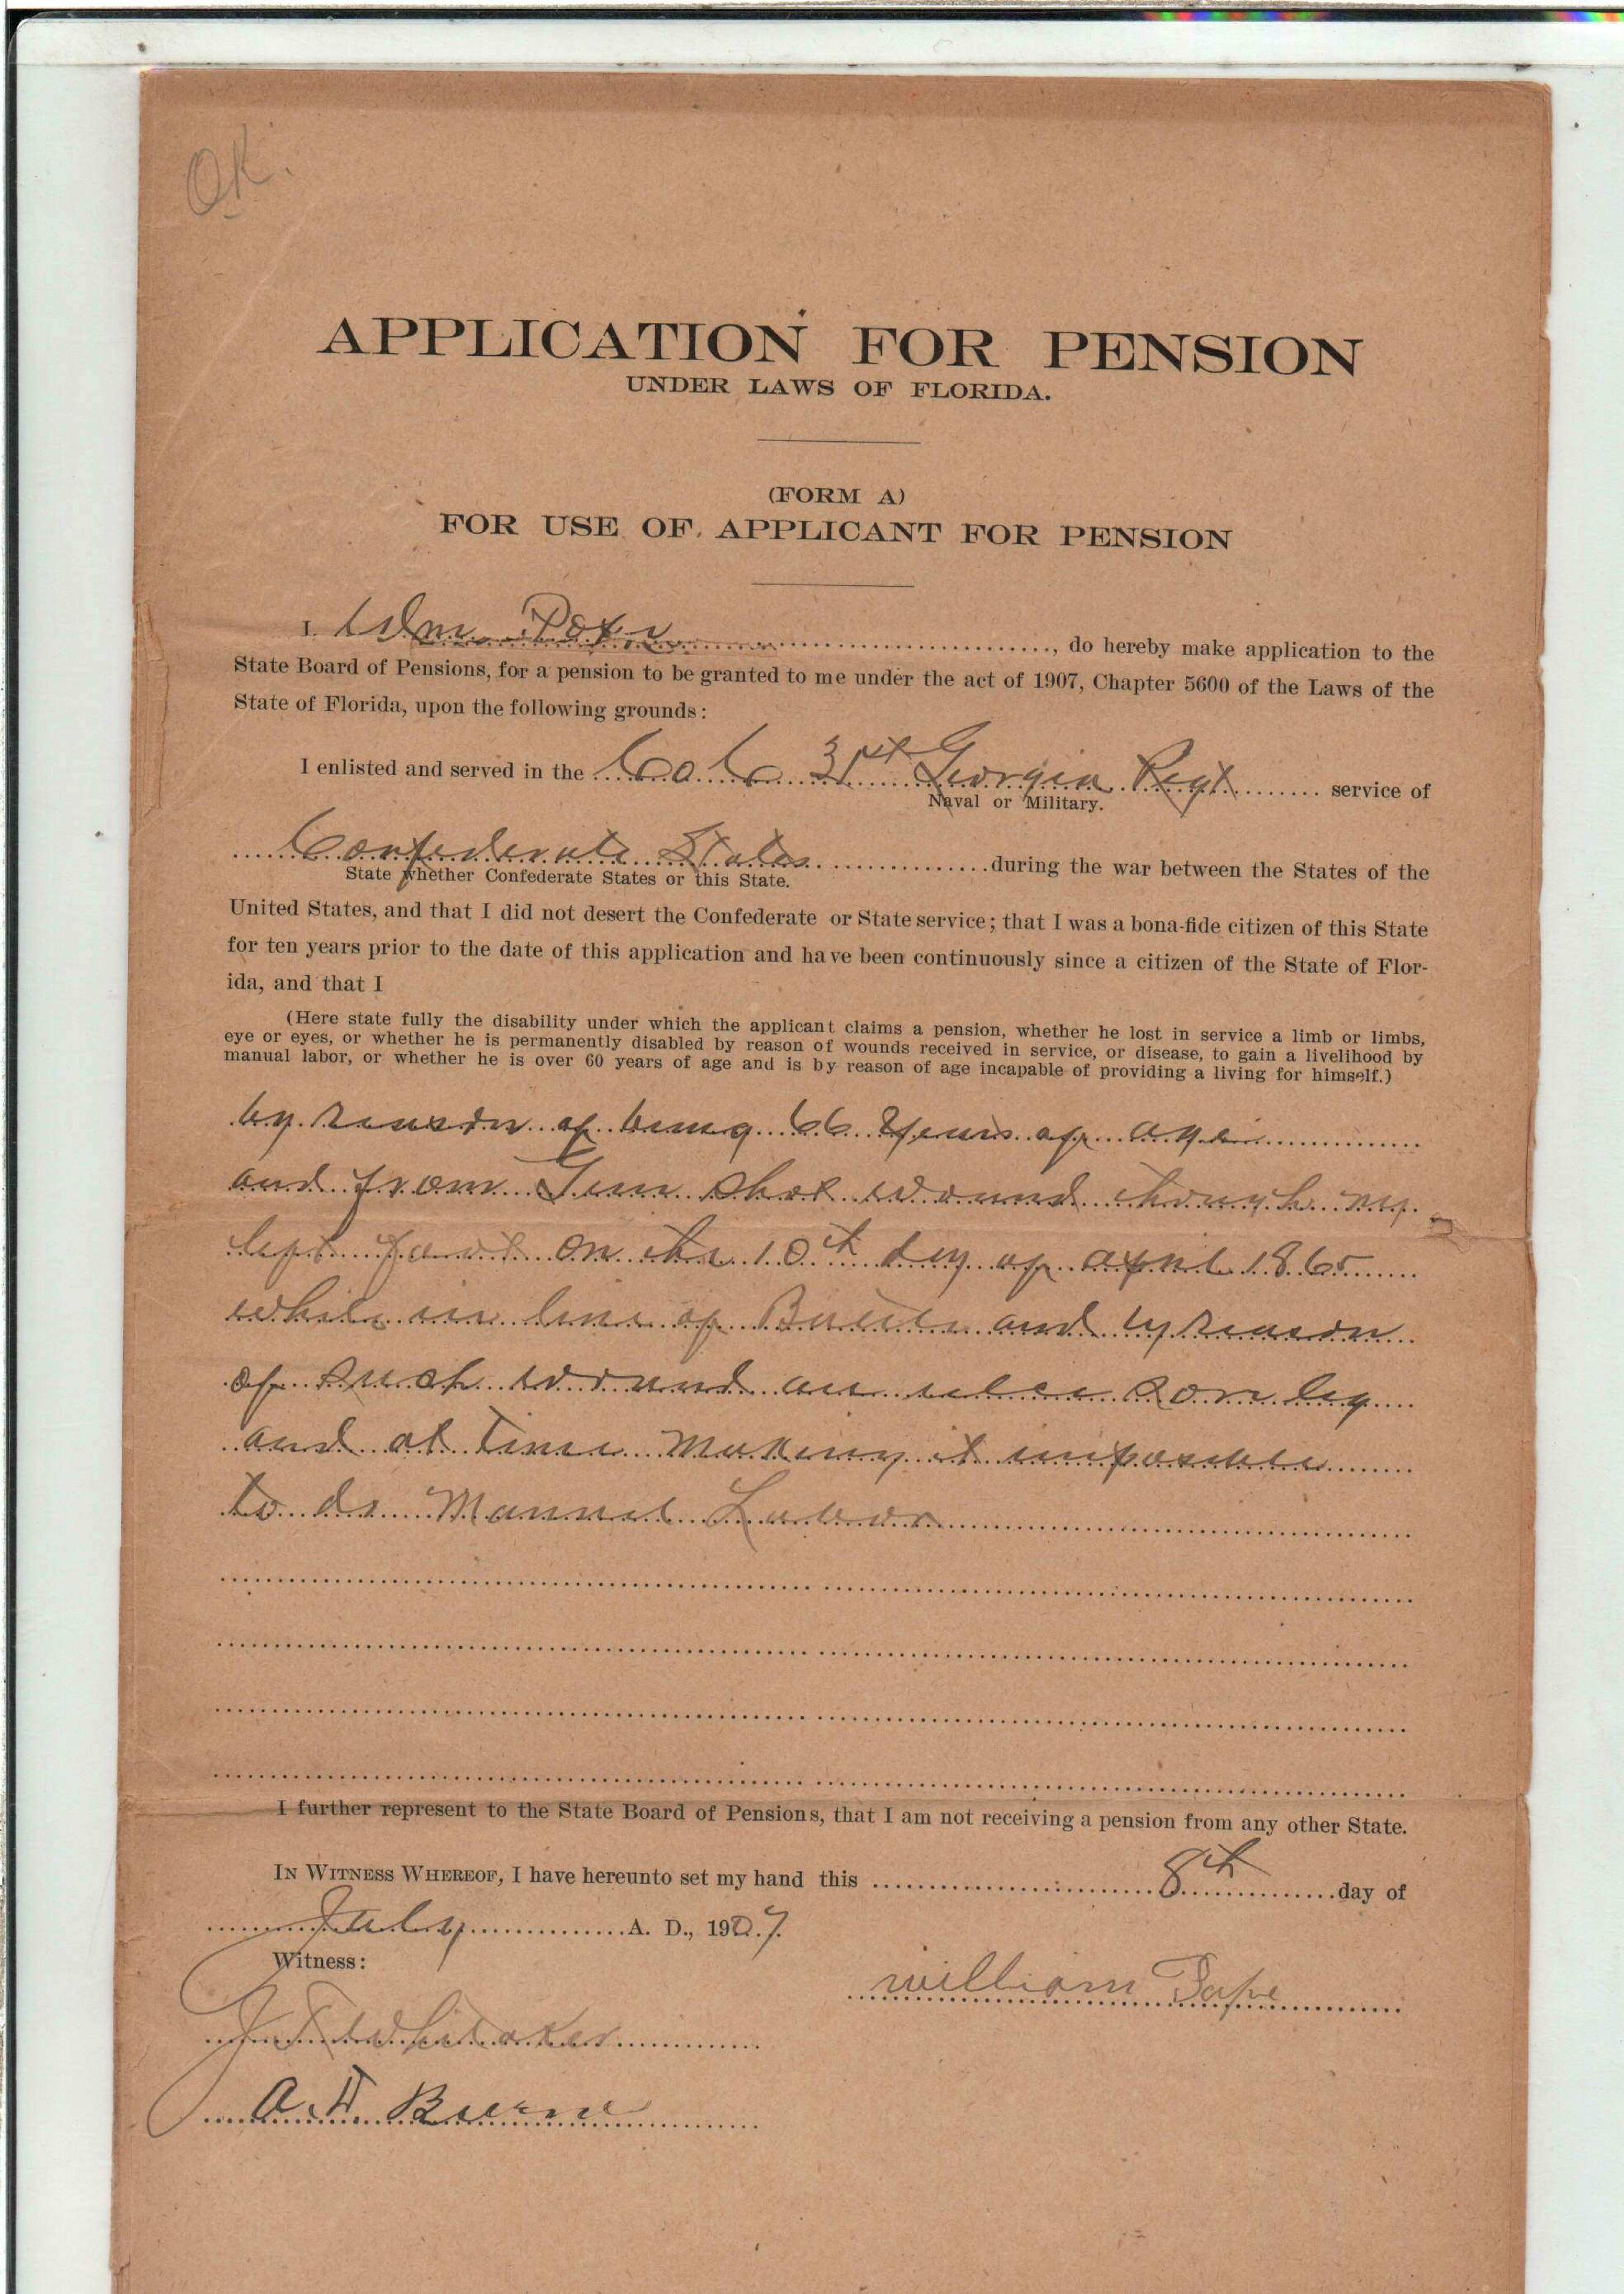 OK.
APPLICATION FOR PENSION
UNDER LAWS OF FLORIDA.
(FORM A)
FOR USE OF APPLICANT FOR PENSION
I. Wm. Pope, do hereby make application to the
State Board of Pensions, for a pension to be granted to me under the act of 1907, Chapter 5600 of the Laws of the
State of Florida, upon the following grounds:
I enlisted and served in the Co C 31st Georgia Regt service of
Naval or Military.
Confederate States during the war between the States of the
State whether Confederate States or this State.
United States, and that I did not desert the Confederate or State service; that I was a bona-fide citizen of this State
for ten years prior to the date of this application and have been continuously since a citizen of the State of Flor-
ida, and that I
(Here state fully the disability under which the applicant claims a pension, whether he lost in service a limb or limbs,
eye or eyes, or whether he is permanently disabled by reason of wounds received in service, or disease, to gain a livelihood by
manual labor, or whether he is over 60 years of age and is by reason of age incapable of providing a living for himself.)
by reason of being 66 years of age
and from Gun shot wound through my
left on the 10th day of april 1865
while in line of Battle and by reason
of such wound an leg
and at time Making it
to do Manuel Labor
I further represent to the State Board of Pensions, that I am not receiving a pension from any other State.
IN WITNESS WHEREOF, I have hereunto set my hand this 8th day of
July A. D., 1907.
Witness:
william Pope
Whitaker
A. H.